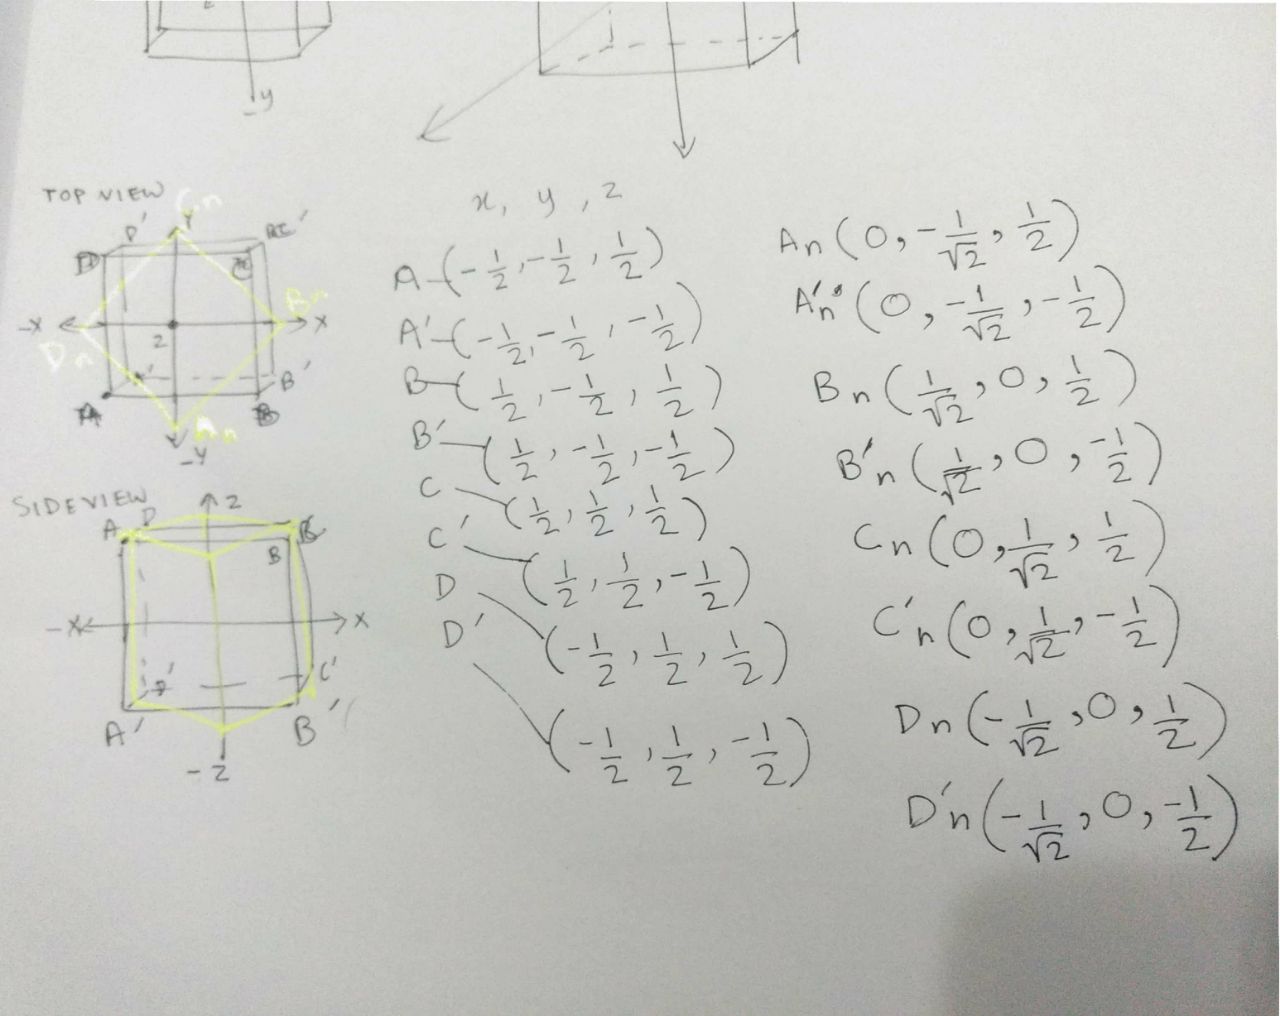 -y
TOP VIEW
Cn
Y
D'
C'
D
C
Bn
-X
X
Dn
z
B'
A
B
An
-Y
SIDE VIEW
z
A D
B
-X
X
D'
C'
A'
B'
-z
x, y, z
A-(-1/2, -1/2, 1/2)
A'-(-1/2, -1/2, -1/2)
B-(1/2, -1/2, 1/2)
B'-(1/2, -1/2, -1/2)
C-(1/2, 1/2, 1/2)
C'-(1/2, 1/2, -1/2)
D-(-1/2, 1/2, 1/2)
D'-(-1/2, 1/2, -1/2)
An(0, -1/√2, 1/2)
A'n(0, -1/√2, -1/2)
Bn(1/√2, 0, 1/2)
B'n(1/√2, 0, -1/2)
Cn(0, 1/√2, 1/2)
C'n(0, 1/√2, -1/2)
Dn(-1/√2, 0, 1/2)
D'n(-1/√2, 0, -1/2)